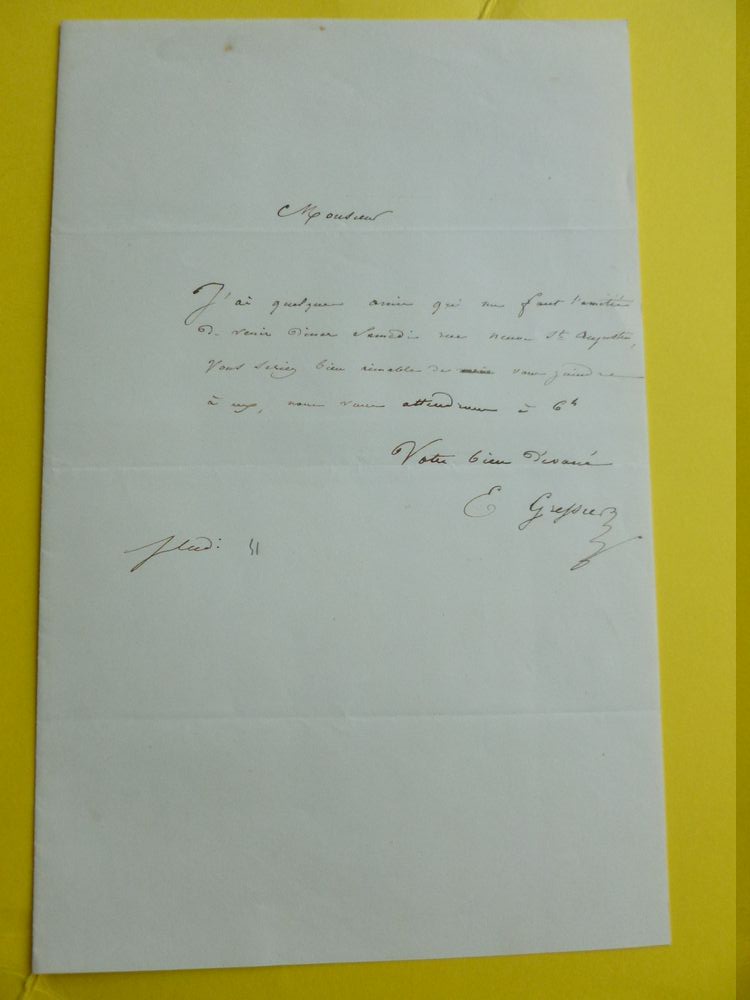 Monsieur
J'ai quelques amis qui me font l'amitié
de venir diner Samedi rue neuve St Augustin,
Vous seriez bien aimable de vous joindre
à eux, nous vous attendrons à 6h
Votre bien dévoué
E Gressier
Jeudi